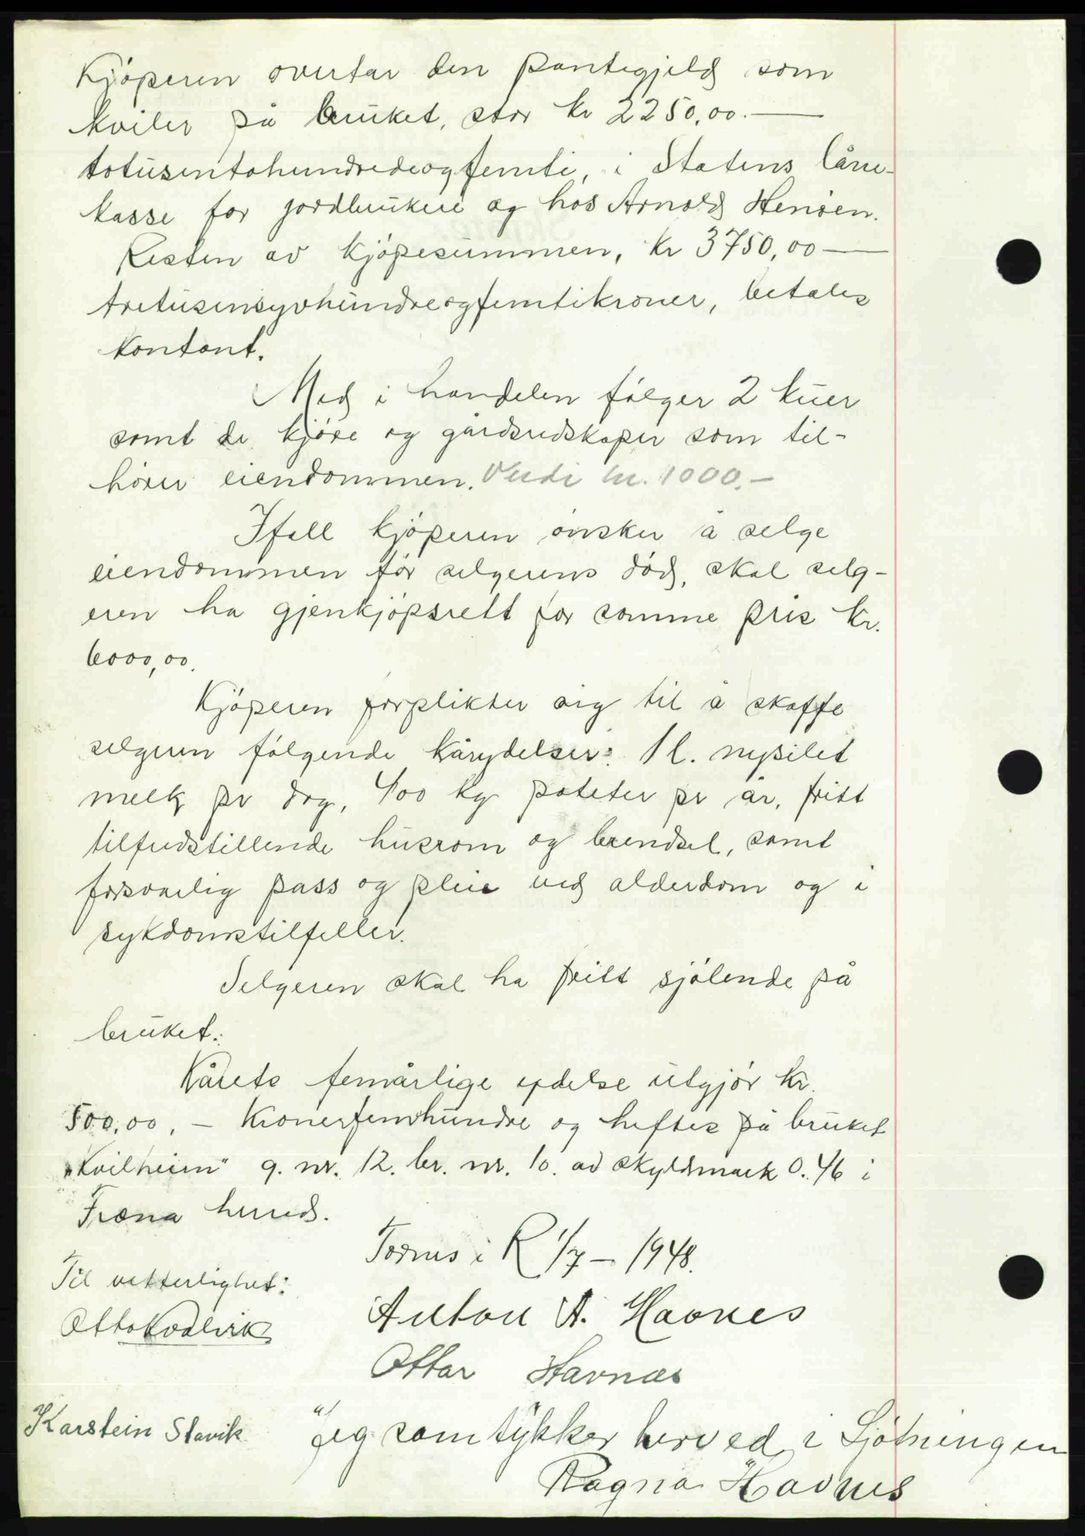 Kjøperen overtar den pantegjeld som
kviler på bruket, stor kr 2250,00.—
totusentohundredeogfemti, i Statens låne-
kasse for jordbrukere og hos Arnold Hensen.
Resten av kjøpesummen, kr 3750,00—
tretusensyvhundreogfemtikroner, betales
kontant.
Med i handelen følger 2 kuer
samt de kjøre og gårdsredskaper som til-
hører eiendommen. Verdi kr. 1000.—
Ifall kjøperen ønsker å selge
eiendommen før selgerens død, skal selg-
eren ha gjenkjøpsrett for samme pris kr.
6000,00.
Kjøperen forplikter sig til å skaffe
selgeren følgende kårydelser: 1 l. nysilet
melk pr dag, 400 kg poteter pr år, fritt
tilfredstillende husrom og brendsel, samt
forsvarlig pass og pleie ved alderdom og i
sykdomstilfeller.
Selgeren skal ha fritt sjølende på
bruket.
Kårets femårlige ydelse utgjør kr.
500,00. — kronerfemhundre og heftes på bruket
"Kvilheim" g. nr. 12. br. nr. 10. av skyldmark 0.46 i
Fræna herred.
Tornes i R 1/7 — 1948.
Til vitterlighet:
Anton A. Havnes
Otto Malvik
Ottar Havnes
Karstein Slavik
Jeg samtykker herved i Skjøtningen
Ragna Havnes